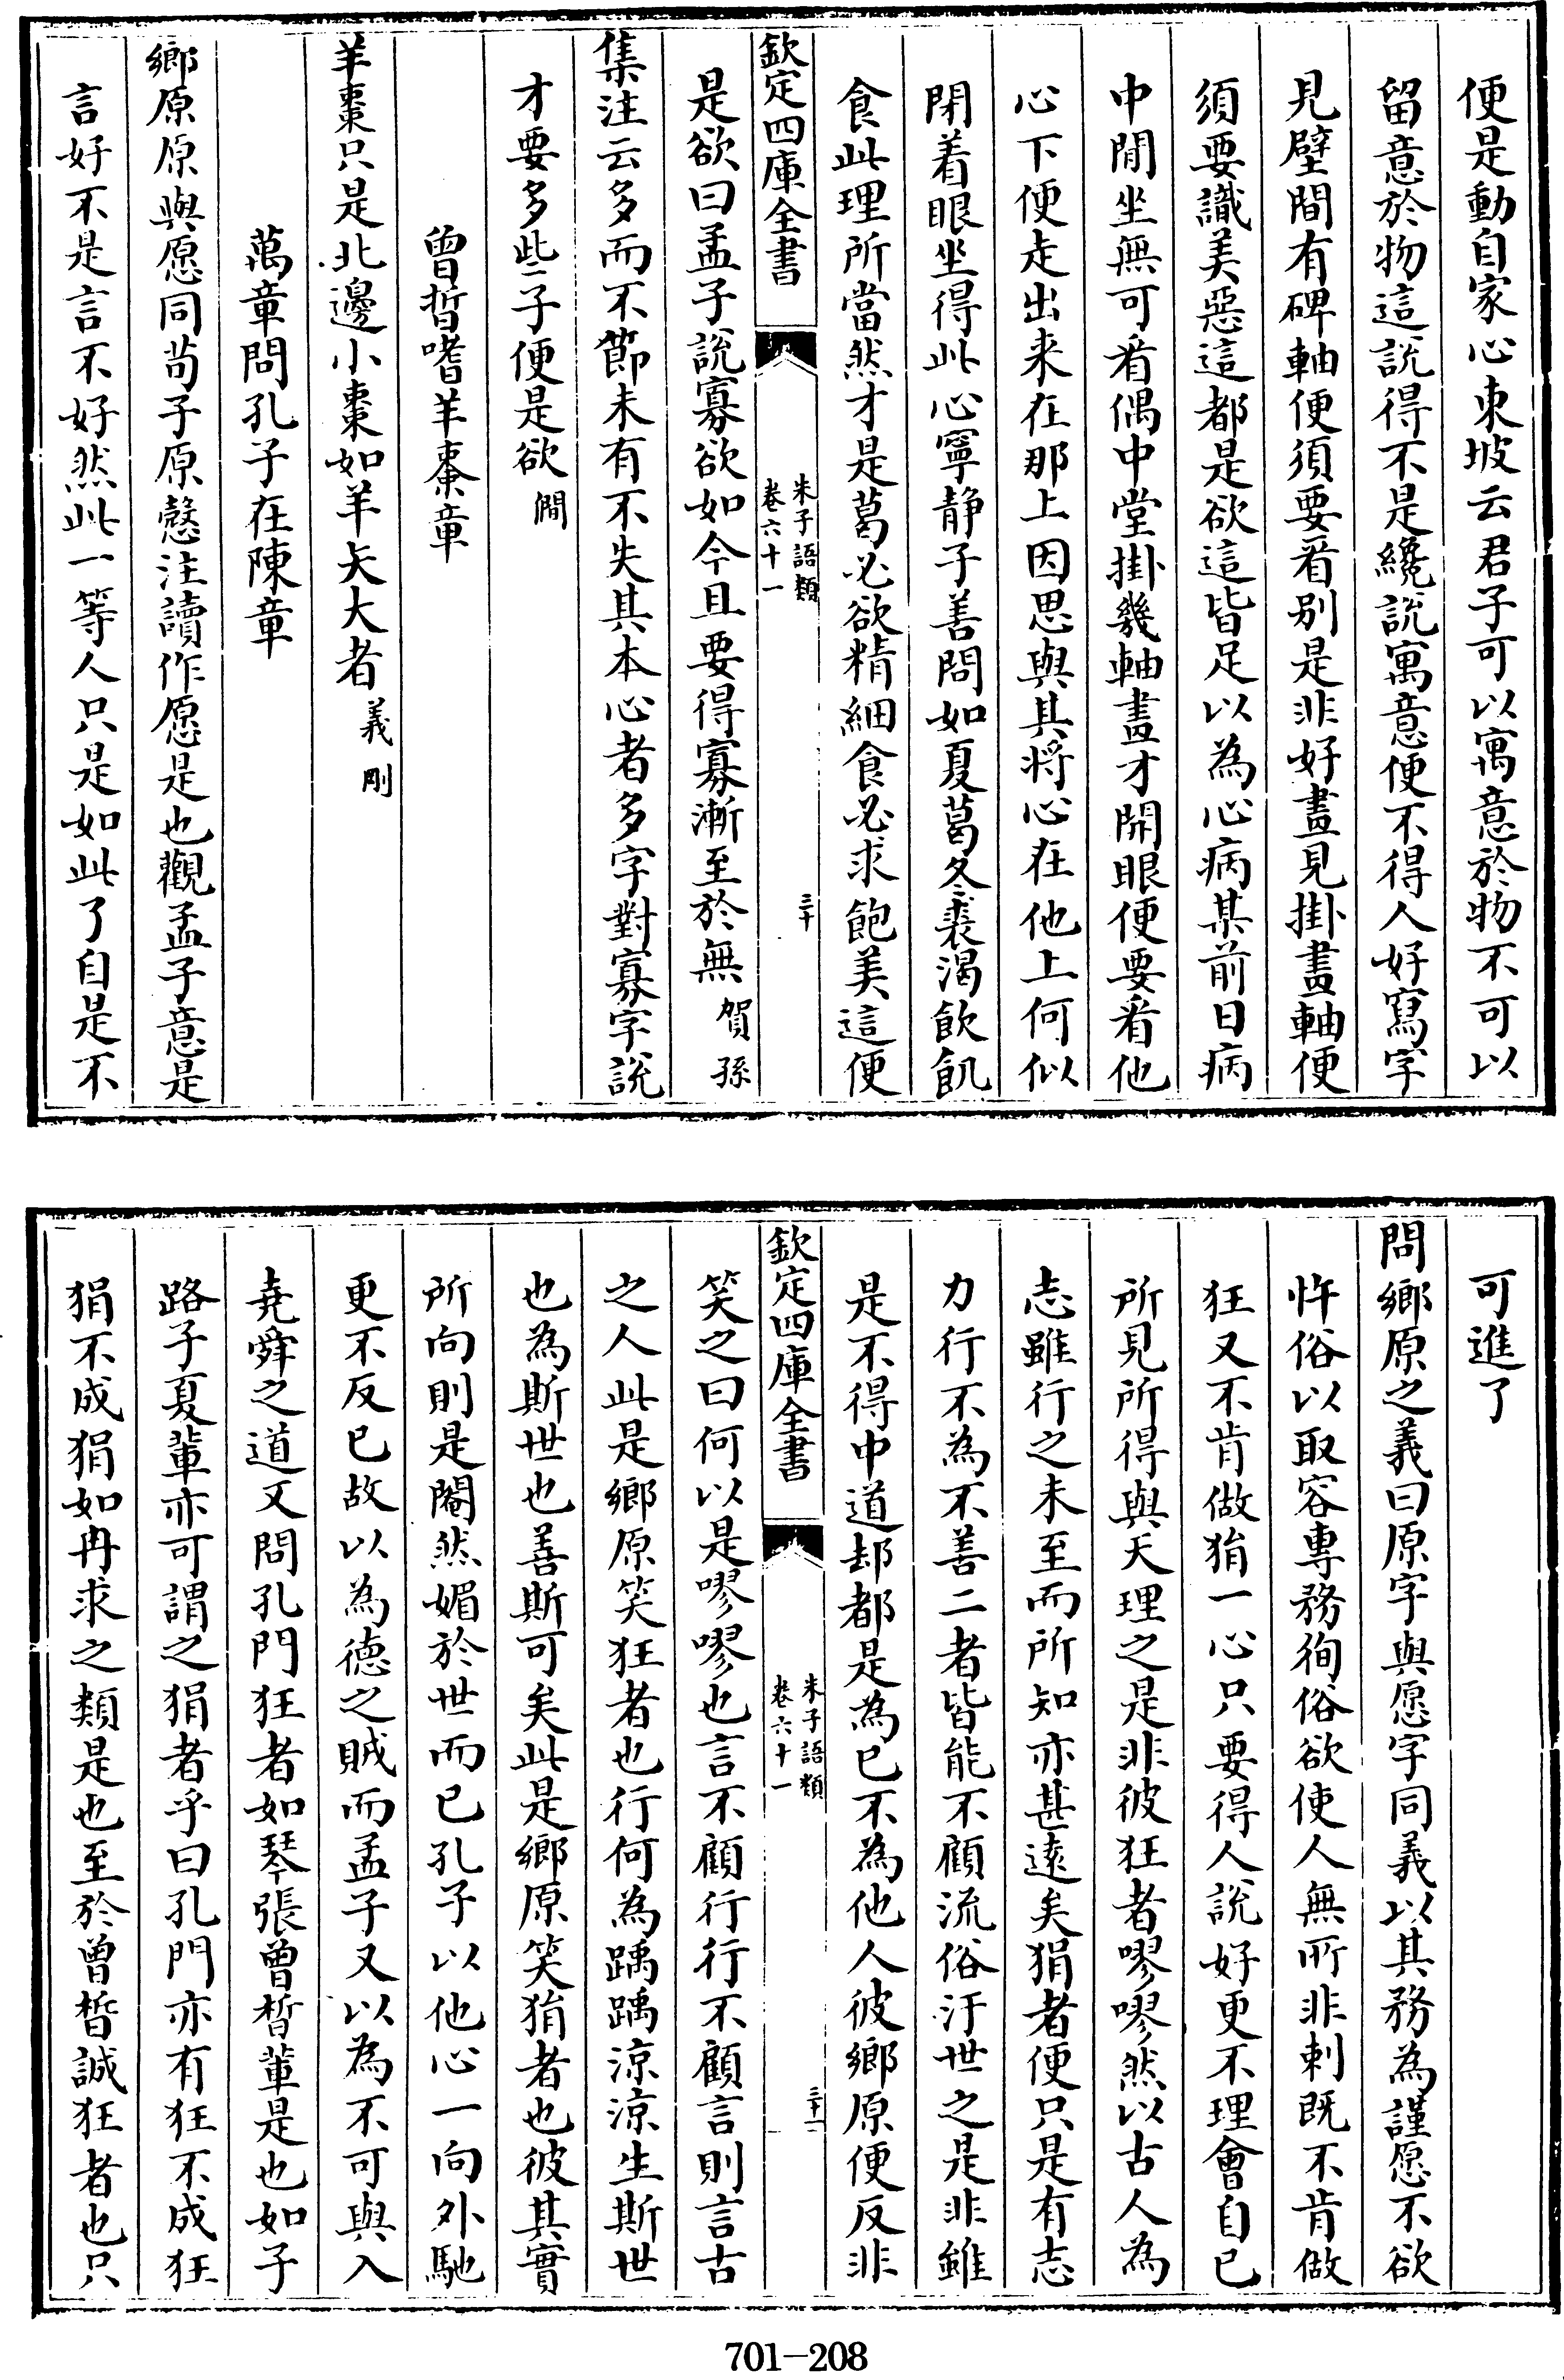 便是動自家心東坡云君子可以寓意於物不可以
留意於物這說得不是纔說寓意便不得人好寫字
見壁間有碑軸便須要看别是非好畫見掛畫軸便
須要識美惡這都是欲這皆足以為心病某前日病
中閒坐無可看偶中堂掛幾軸畫才開眼便要看他
心下便走出来在那上因思與其将心在他上何似
閉着眼坐得此心寧静子善問如夏葛冬裘渴飲飢
食此理所當然才是葛必欲精細食必求飽美這便
欽定四庫全書
朱子語類
卷六十一
三十
是欲曰孟子說寡欲如今且要得寡漸至於無 賀孫
集注云多而不節未有不失其本心者多字對寡字說
才要多些子便是欲 僩
曾晳嗜羊棗章
羊棗只是北邊小棗如羊矢大者 義剛
萬章問孔子在陳章
鄉原原與愿同荀子原慤注讀作愿是也觀孟子意是
言好不是言不好然此一等人只是如此了自是不
可進了
問鄉原之義曰原字與愿字同義以其務為謹愿不欲
忤俗以取容專務徇俗欲使人無所非刺既不肯做
狂又不肯做狷一心只要得人說好更不理會自已
所見所得與天理之是非彼狂者嘐嘐然以古人為
志雖行之未至而所知亦甚遠矣狷者便只是有志
力行不為不善二者皆能不顧流俗汙世之是非雖
是不得中道却都是為已不為他人彼鄉原便反非
欽定四庫全書
朱子語類
卷六十一
三十一
笑之曰何以是嘐嘐也言不顧行行不顧言則言古
之人此是鄉原笑狂者也行何為踽踽涼涼生斯世
也為斯世也善斯可矣此是鄉原笑狷者也彼其實
所向則是閹然媚於世而已孔子以他心一向外馳
更不反已故以為德之賊而孟子又以為不可與入
堯舜之道又問孔門狂者如琴張曾晳輩是也如子
路子夏輩亦可謂之狷者乎曰孔門亦有狂不成狂
狷不成狷如冉求之類是也至於曾晳誠狂者也只
701-208